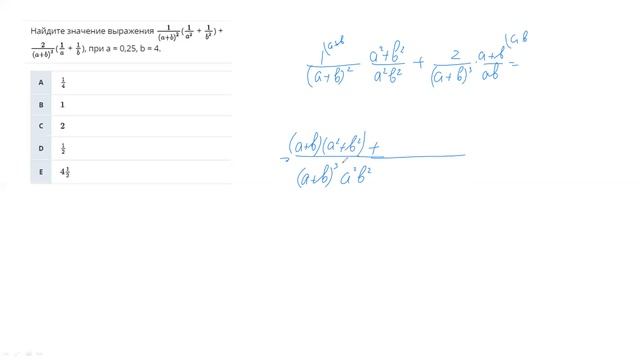 Найдите значение выражения 1/(a+b)² (1/a² + 1/b²) +
2/(a+b)³ (1/a + 1/b), при a = 0,25, b = 4.
A 1/4
B 1
C 2
D 1/2
E 4 1/2
1\a+b/(a+b)² a²+b²/a²b² + 2/(a+b)³ · a+b/ab \ab =
= (a+b)(a²+b²) + / (a+b)³ a²b²